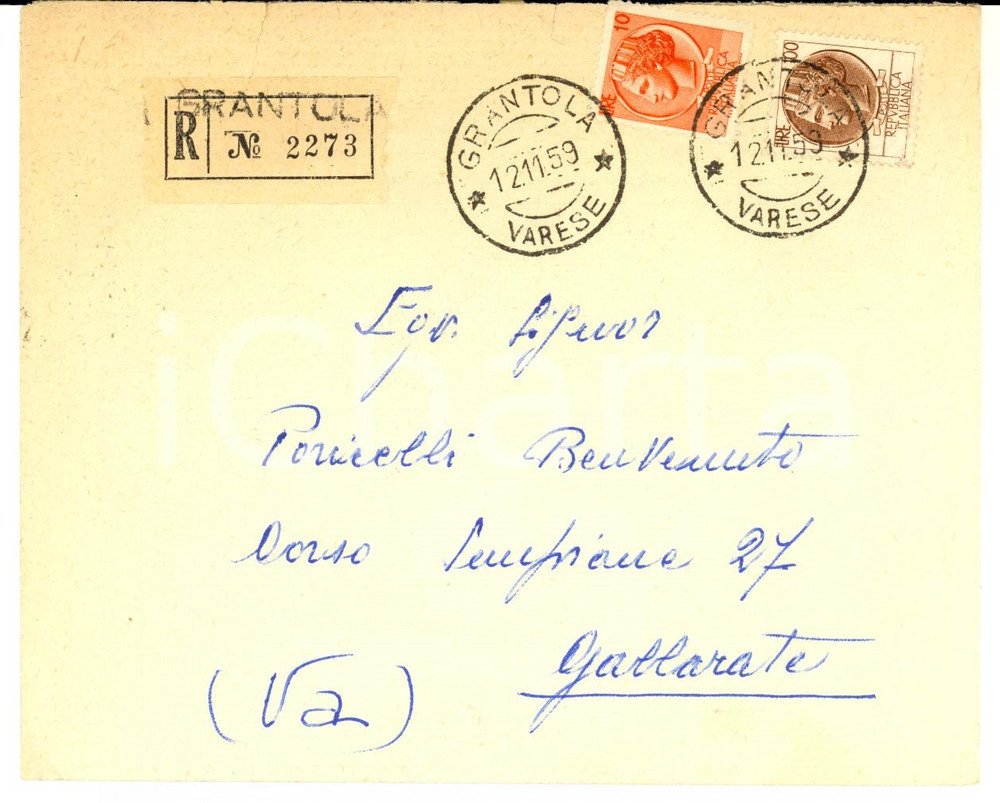 GRANTOLA
R № 2273
GRANTOLA
12.11.59
VARESE
10
LIRE
GRANTOLA
12.11.59
VARESE
100
LIRE
REPVBBLICA
ITALIANA
Egr. Signor
Porricelli BenVenuto
Corso Sempione 27
Gallarate
(Va)
iCharta